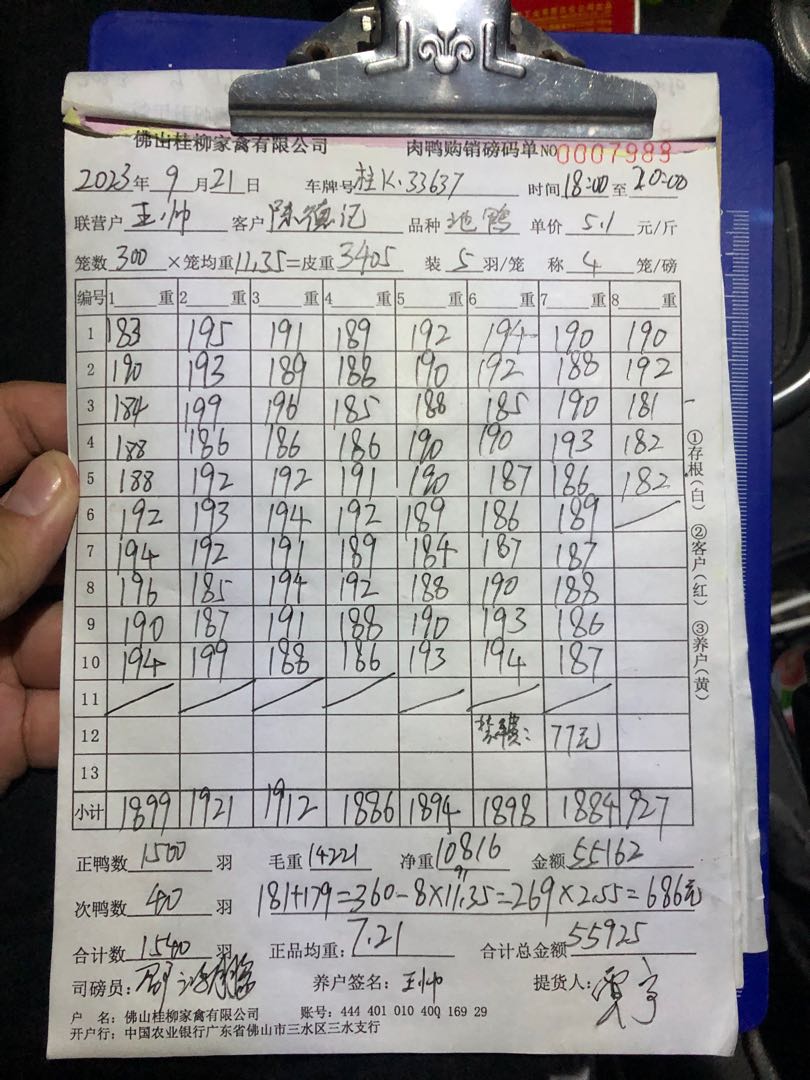 佛山桂柳家禽有限公司 肉鸭购销磅码单 NO 0007989
2023年 9月21日 车牌号 桂K·33637 时间 18:00 至 20:00
联营户 王帅 客户 陈德记 品种 池鸭 单价 5.1 元/斤
笼数 300 ×笼均重 11.35 =皮重 3405 装 5 羽/笼 称 4 笼/磅
编号 1 重 2 重 3 重 4 重 5 重 6 重 7 重 8 重
1 183 195 191 189 192 194 190 190
2 190 193 189 188 190 192 188 192
3 184 199 196 185 188 185 190 181
4 188 186 186 186 190 190 193 182
5 188 192 192 191 190 187 186 182
6 192 193 194 192 189 186 189
7 194 192 191 189 184 187 187
8 196 185 194 192 188 190 188
9 190 187 191 188 190 193 186
10 194 199 188 186 193 194 187
11
12 费: 77元
13
小计 1899 1921 1912 1886 1894 1898 1884 927
①存根(白) ②客户(红) ③养户(黄)
正鸭数 1500 羽 毛重 14221 净重 10816 金额 55162
91
次鸭数 40 羽 181+179=360-8×11.35=269×2.55=686元
合计数 1540 羽 正品均重: 7.21 合计总金额 55925
司磅员: 养户签名: 王帅 提货人: 贾亨
户 名: 佛山桂柳家禽有限公司 账号: 444 401 010 400 169 29
开户行: 中国农业银行广东省佛山市三水区三水支行